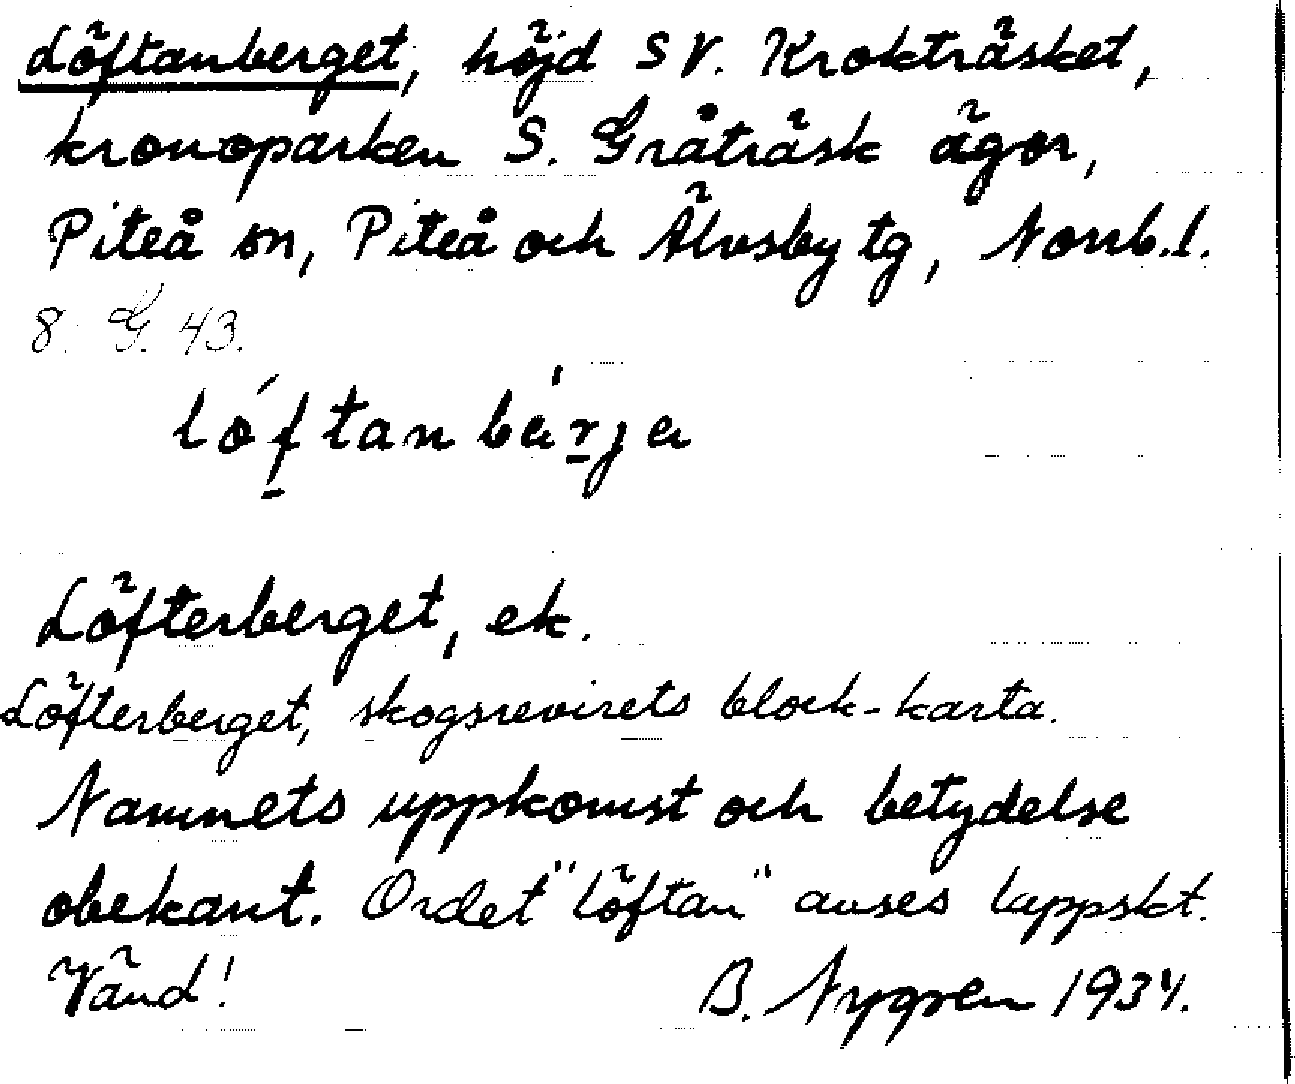 Löftanberget, höjd SV. Krokträsket,
kronoparken S. Gråträsk ägor,
Piteå sn, Piteå och Älvsby tg, Norrb.l.
8. G. 43.
lóftanbärja
Löfterberget, ek.
Löfterberget, skogsrevirets block-karta.
Namnets uppkomst och betydelse
obekant. Ordet "löftan" anses lappskt.
Vänd! B. Nygren 1934.